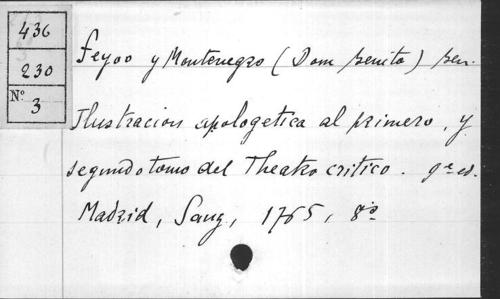 436
230
Nº
3
Feyoo y Montenegro (Dom Benito)
Ilustracion apologetica al primero, y
segundo tomo del Theatro critico. 9ª ed.
Madrid, Sanz, 1765, 8º